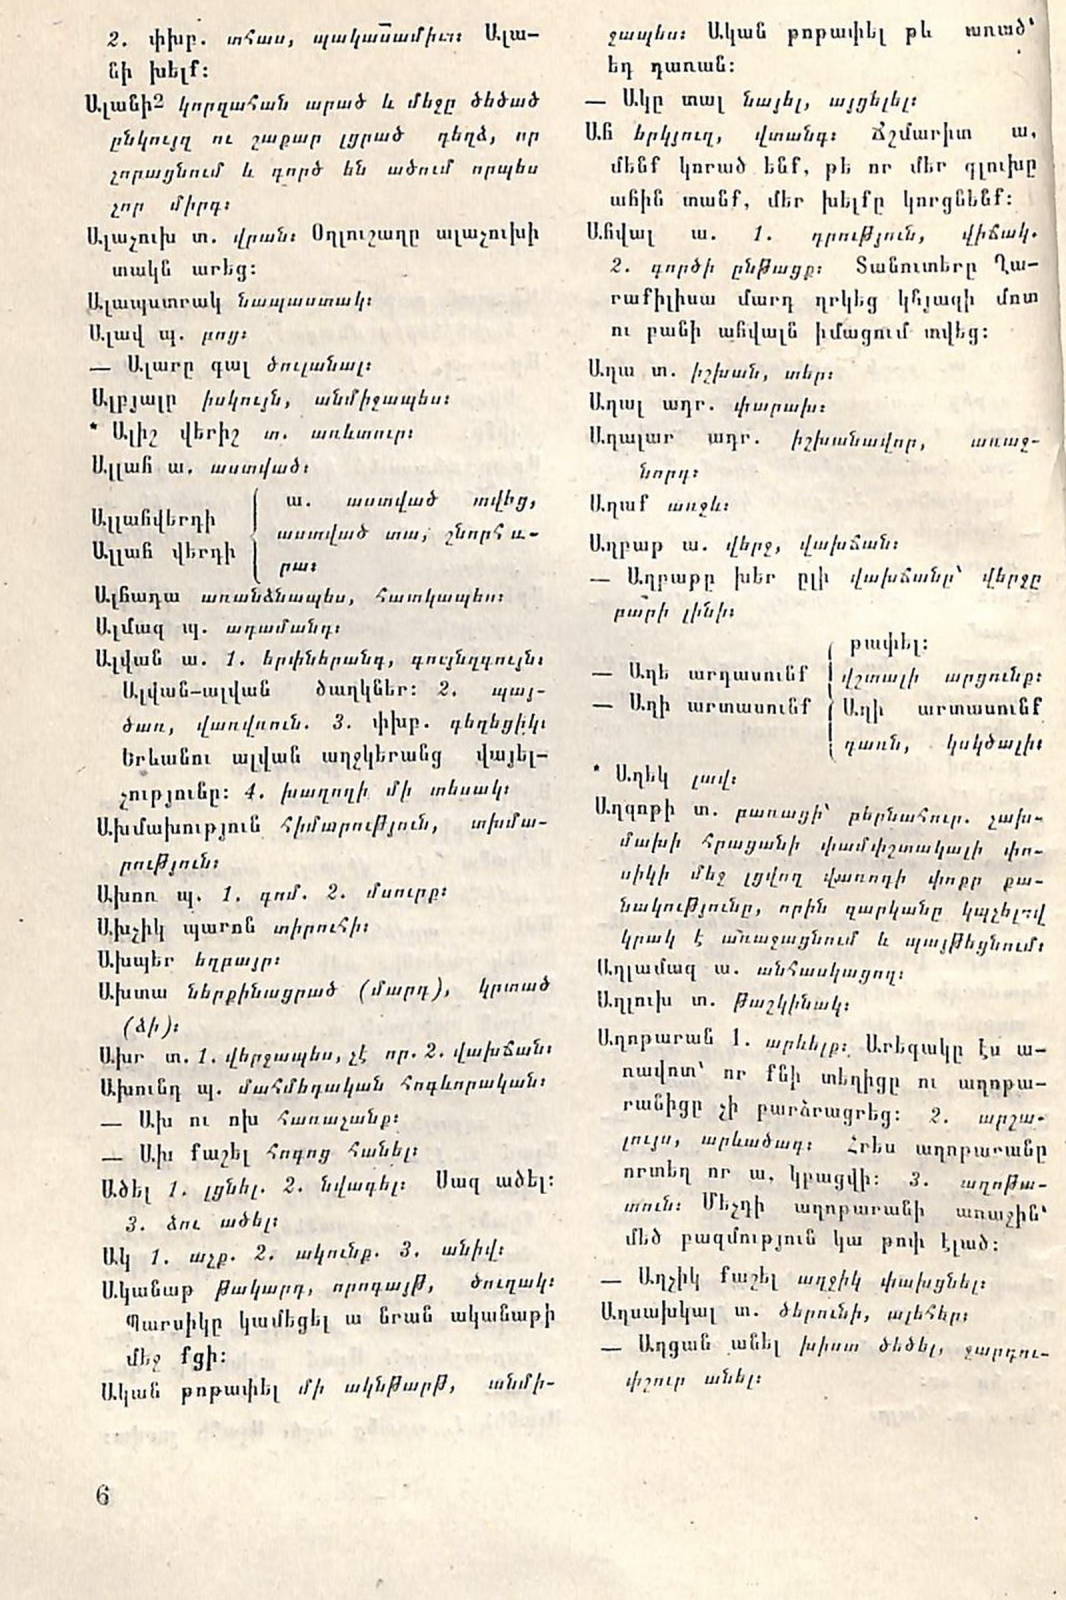 2. փխբ. տհաս, պակասամիտ։ Ալա-
նի խելք։
Ալանի2 կորզահան արած և մեջը ծեծած
ընկույզ ու շաքար լցրած դեղձ, որ
չորացնում և գործ են ածում որպես
չոր միրգ։
Ալաչուխ տ. վրան։ Օղլուշաղը ալաչուխի
տակն արեց։
Ալապստրակ նապաստակ։
Ալավ պ. բոց։
— Ալարը գալ ծուլանալ։
Ալբյալը իսկույն, անմիջապես։
* Ալիշ վերիշ տ. առևտուր։
Ալլահ ա. աստված։
Ալլահվերդի
Ալլահ վերդի
ա. աստված տվեց,
աստված տա, շնորհա-
րա։
Ալհադա առանձնապես, հատկապես։
Ալմազ պ. ադամանդ։
Ալվան ա. 1. երփներանգ, գույնզգույն։
Ալվան-ալվան ծաղկներ։ 2. պայ-
ծառ, վառվռուն. 3. փխբ. գեղեցիկ։
Երևանու ալվան աղջկերանց վայել-
չությունը։ 4. խաղողի մի տեսակ։
Ախմախություն հիմարություն, տխմա-
րություն։
Ախոռ պ. 1. գոմ. 2. մսուրք։
Ախչիկ պարոն տիրուհի։
Ախպեր եղբայր։
Ախտա ներքինացրած (մարդ), կրտած
(ձի)։
Ախր տ. 1. վերջապես, չէ որ. 2. վախճան։
Ախունդ պ. մահմեդական հոգևորական։
— Ախ ու ոխ հառաչանք։
— Ախ քաշել հոգոց հանել։
Ածել 1. լցնել. 2. նվագել։ Սազ ածել։
3. ձու ածել։
Ակ 1. աչք. 2. ակունք. 3. անիվ։
Ականաթ թակարդ, որոգայթ, ծուղակ։
Պարսիկը կամեցել ա նրան ականաթի
մեջ քցի։
Ական թոթափել մի ակնթարթ, անմի-
ջապես։ Ական թոթափել թև առած՝
եդ դառան։
— Ակը տալ նայել, այցելել։
Ահ երկյուղ, վտանգ։ Ճշմարիտ ա,
մենք կորած ենք, թե որ մեր գլուխը
ահին տանք, մեր խելքը կորցնենք։
Ահվալ ա. 1. դրություն, վիճակ.
2. գործի ընթացք։ Տանուտերը Ղա-
րաքիլիսա մարդ ղրկեց կհյազի մոտ
ու բանի ահվալն իմացում տվեց։
Աղա տ. իշխան, տեր։
Աղալ ադր. փարախ։
Աղալար ադր. իշխանավոր, առաջ-
նորդ։
Աղաք առջև։
Աղբաթ ա. վերջ, վախճան։
— Աղբաթը խեր ըլի վախճանը՝ վերջը
բարի լինի։
— Աղե արդասունք
— Աղի արտասունք
թափել։
վշտալի արցունք։
Աղի արտասունք
դառն, կսկծալի։
* Աղեկ լավ։
Աղզոթի տ. բառացի՝ բերնահուր. չախ-
մախի հրացանի փամփշտակալի փո-
սիկի մեջ լցվող վառոդի փոքր քա-
նակությունը, որին զարկանը կպչելով
կրակ է առաջացնում և պայթեցնում։
Աղլամազ ա. անհասկացող։
Աղլուխ տ. թաշկինակ։
Աղոթարան 1. արևելք։ Արեգակը էս ա-
ռավոտ՝ որ քնի տեղիցը ու աղոթա-
րանիցը չի բարձրացրեց։ 2. արշա-
լույս, արևածագ։ Հրես աղոթարանը
որտեղ որ ա, կբացվի։ 3. աղոթա-
տուն։ Մեչդի աղոթարանի առաջին՝
մեծ բազմություն կա թոփ էլած։
— Աղչիկ քաշել աղջիկ փախցնել։
Աղսախկալ տ. ծերունի, ալեհեր։
— Աղցան անել խիստ ծեծել, ջարդու-
փշուր անել։
6